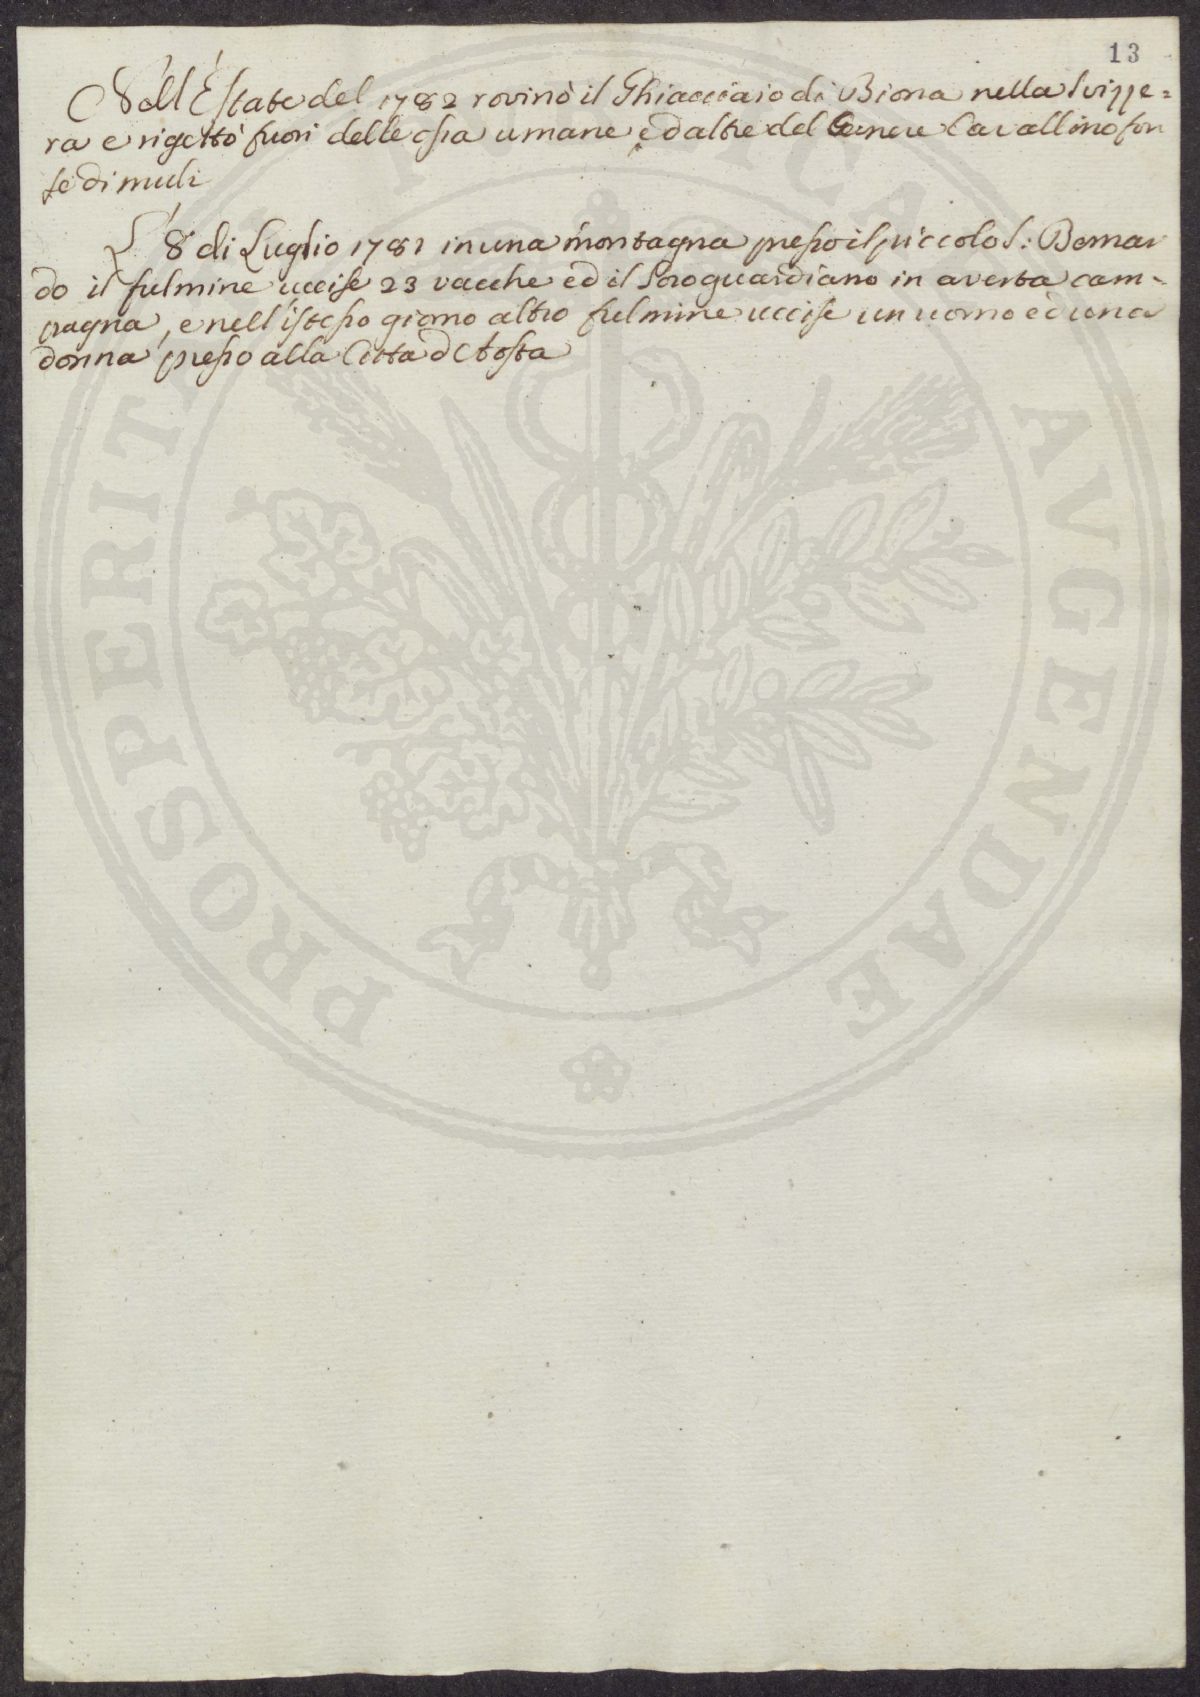 13
Nell'Estate del 1782 rovinò il Ghiacciaio di Biona nella Svizze=
ra e rigettò fuori delle ossa umane, ed altre del Genere Cavallino for
se di muli
L' 8 di Luglio 1781 in una montagna presso il piccolo S: Bernar
do il fulmine uccise 23 vacche ed il loro guardiano in averta cam-
pagna, e nell'istesso giorno altro fulmine uccise un uomo ed una
donna presso alla Città d'Aosta
PROSPERITATI PUBLICAE AVGENDAE